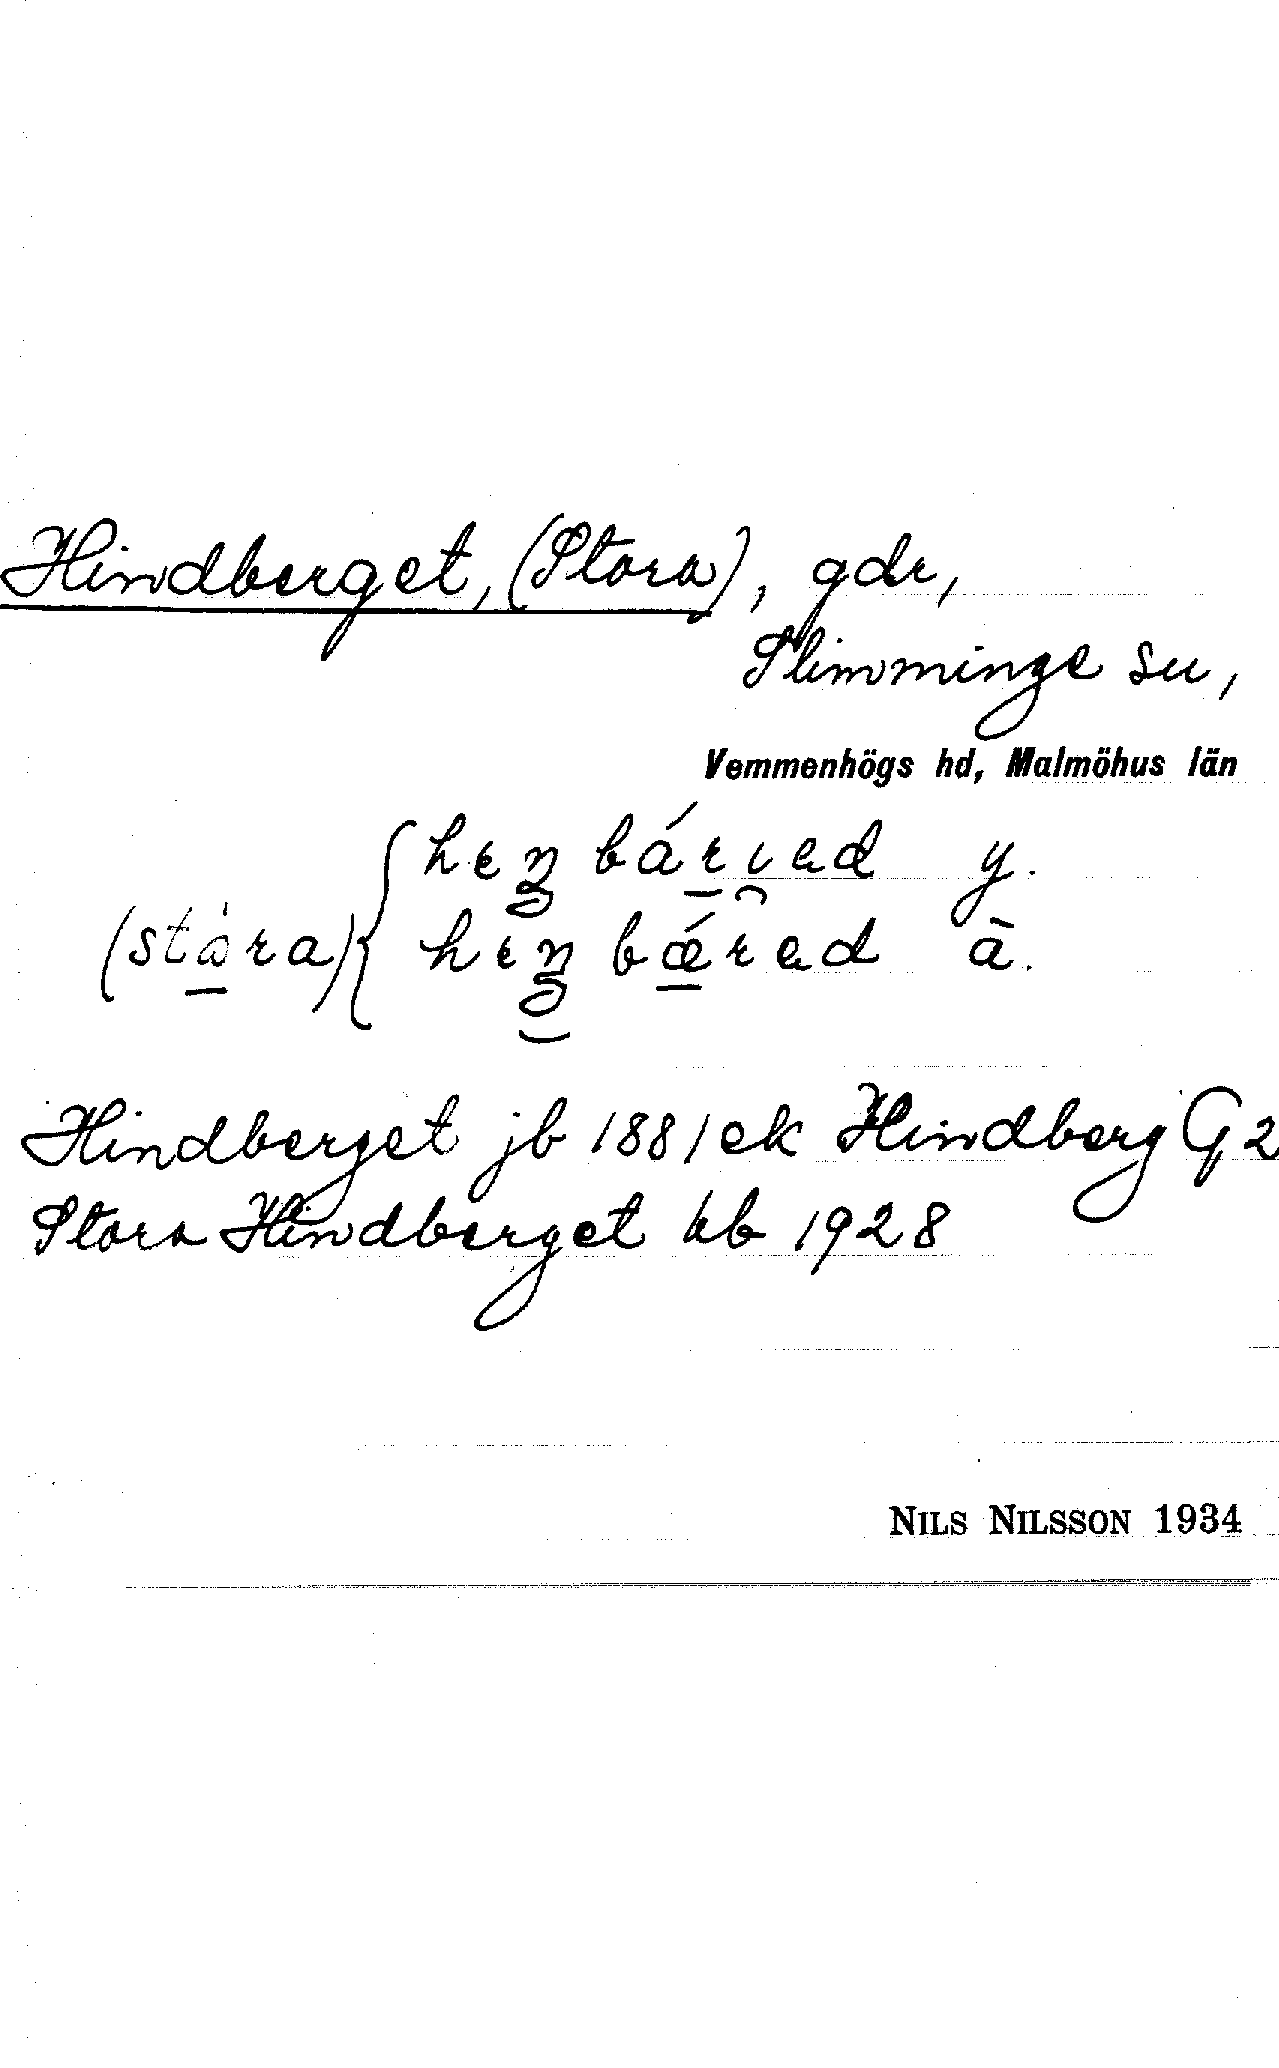 Hindberget, (Stora), gdr,
Slimminge su,
Vemmenhögs hd, Malmöhus län
y.
(stàra) ä.
Hindberget jb 1881 ek Hindberg G 2
Stora Hindberget kb 1928
NILS NILSSON 1934